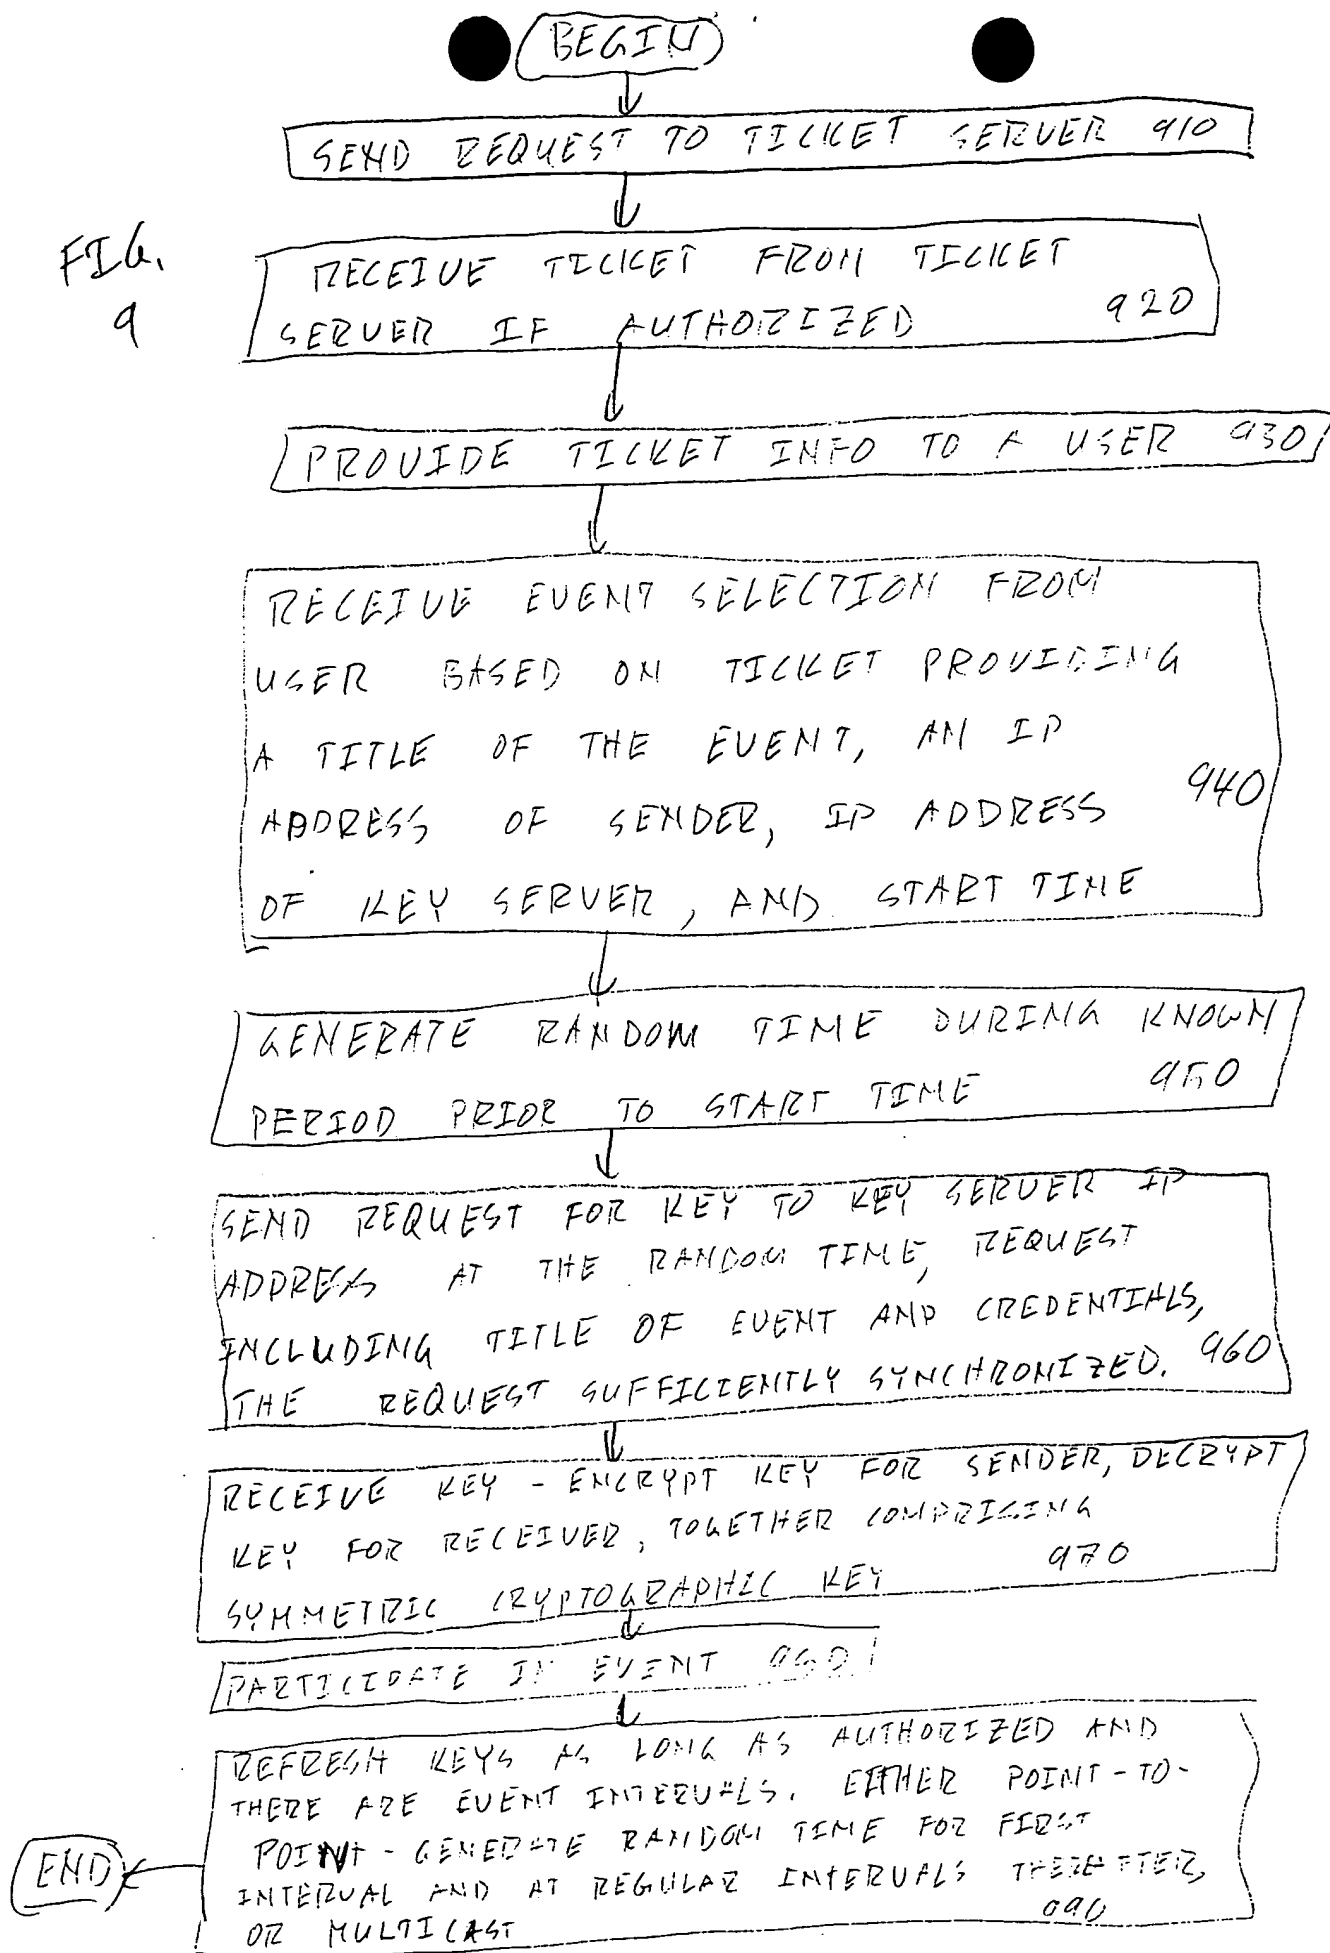 BEGIN
SEND REQUEST TO TICKET SERVER 910
FIG.
9
RECEIVE TICKET FROM TICKET
SERVER IF AUTHORIZED 920
PROVIDE TICKET INFO TO A USER 930
RECEIVE EVENT SELECTION FROM
USER BASED ON TICKET PROVIDING
A TITLE OF THE EVENT, AN IP
ADDRESS OF SENDER, IP ADDRESS 940
OF KEY SERVER, AND START TIME
GENERATE RANDOM TIME DURING KNOWN
PERIOD PRIOR TO START TIME 950
SEND REQUEST FOR KEY TO KEY SERVER IP
ADDRESS AT THE RANDOM TIME, REQUEST
INCLUDING TITLE OF EVENT AND CREDENTIALS,
THE REQUEST SUFFICIENTLY SYNCHRONIZED. 960
RECEIVE KEY - ENCRYPT KEY FOR SENDER, DECRYPT
KEY FOR RECEIVER, TOGETHER COMPRISING
SYMMETRIC CRYPTOGRAPHIC KEY 970
PARTICIPATE IN EVENT 980
REFRESH KEYS AS LONG AS AUTHORIZED AND
THERE ARE EVENT INTERVALS. EITHER POINT-TO-
POINT - GENERATE RANDOM TIME FOR FIRST
INTERVAL AND AT REGULAR INTERVALS THEREAFTER,
OR MULTICAST 990
END